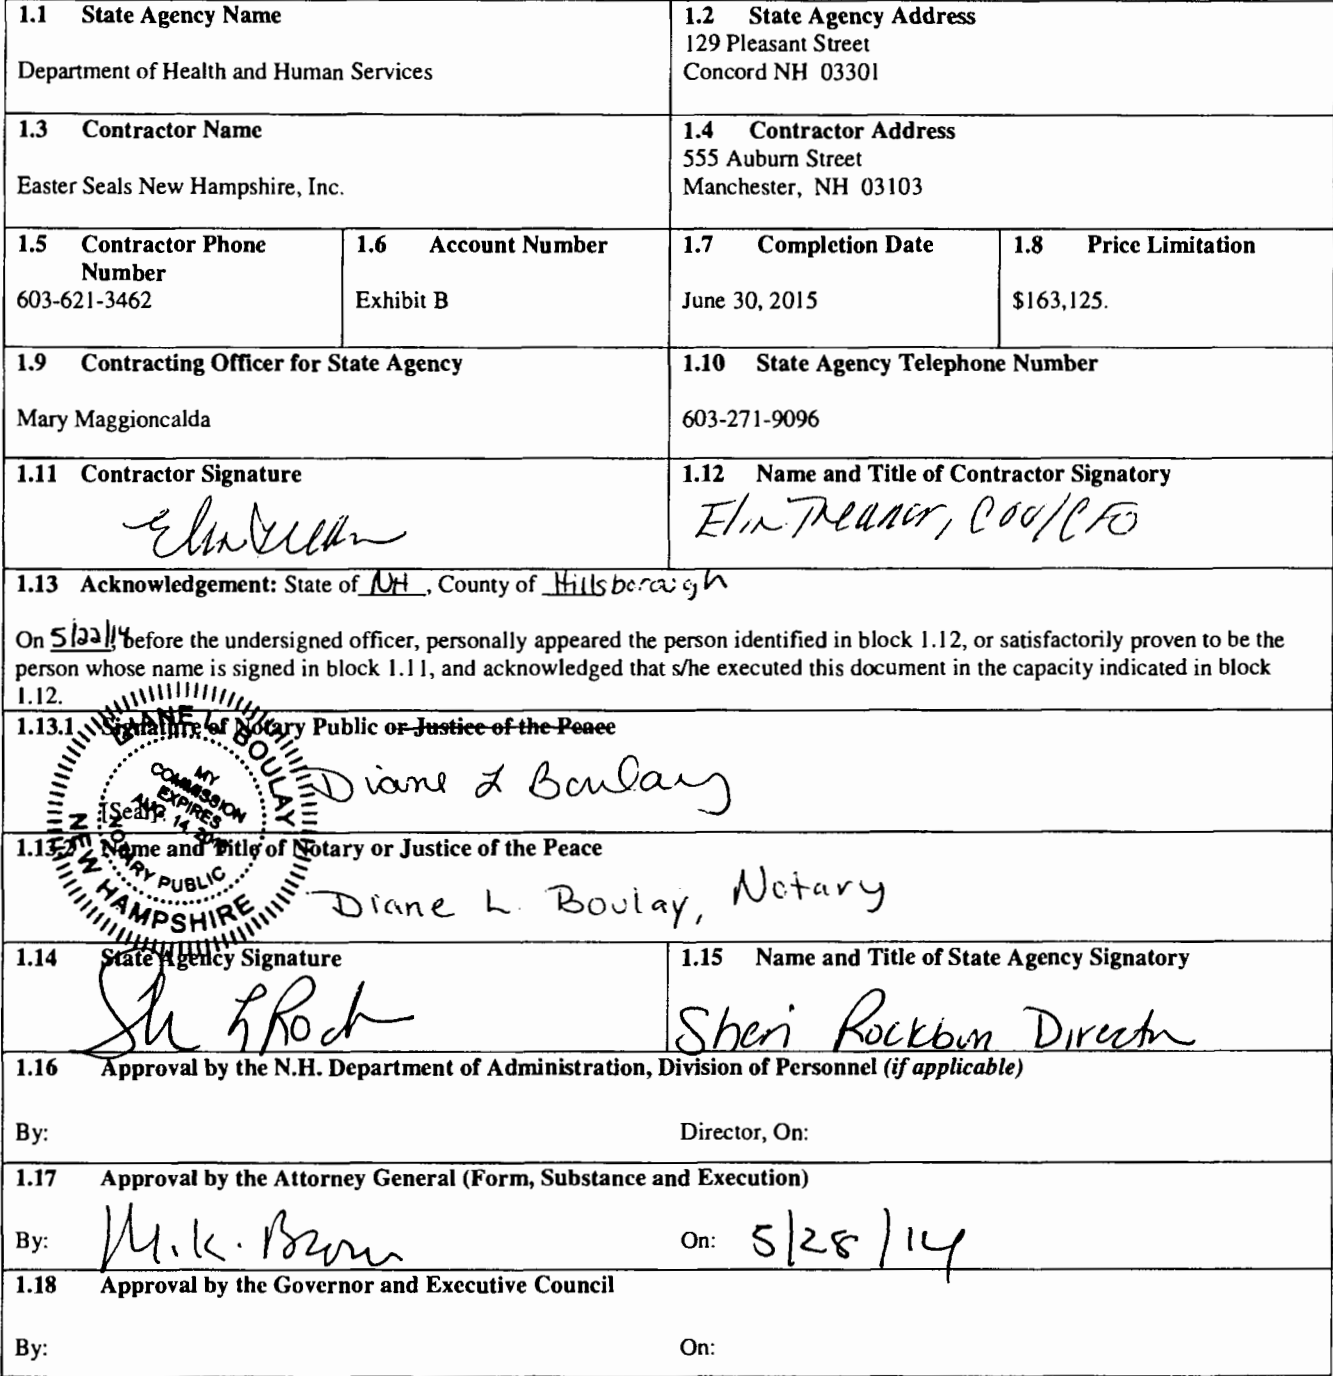 1.1 State Agency Name
Department of Health and Human Services
1.2 State Agency Address
129 Pleasant Street
Concord NH 03301
1.3 Contractor Name
Easter Seals New Hampshire, Inc.
1.4 Contractor Address
555 Auburn Street
Manchester, NH 03103
1.5 Contractor Phone
Number
603-621-3462
1.6 Account Number
Exhibit B
1.7 Completion Date
June 30, 2015
1.8 Price Limitation
$163,125.
1.9 Contracting Officer for State Agency
Mary Maggioncalda
1.10 State Agency Telephone Number
603-271-9096
1.11 Contractor Signature
1.12 Name and Title of Contractor Signatory
Elin Treanor, COO/CFO
1.13 Acknowledgement: State of NH, County of Hillsborough
On 5/22/14, before the undersigned officer, personally appeared the person identified in block 1.12, or satisfactorily proven to be the
person whose name is signed in block 1.11, and acknowledged that s/he executed this document in the capacity indicated in block
1.12.
1.13.1 Signature of Notary Public or Justice of the Peace
Diane L Boulay
[Seal]
DIANE L. BOULAY
NEW HAMPSHIRE
NOTARY PUBLIC
MY
COMMISSION
EXPIRES
AUG. 14,
1.13.2 Name and Title of Notary or Justice of the Peace
Diane L. Boulay, Notary
1.14 State Agency Signature
1.15 Name and Title of State Agency Signatory
Sheri Rockburn Director
1.16 Approval by the N.H. Department of Administration, Division of Personnel (if applicable)
By: Director, On:
1.17 Approval by the Attorney General (Form, Substance and Execution)
By: M.K. Brown On: 5/28/14
1.18 Approval by the Governor and Executive Council
By: On: